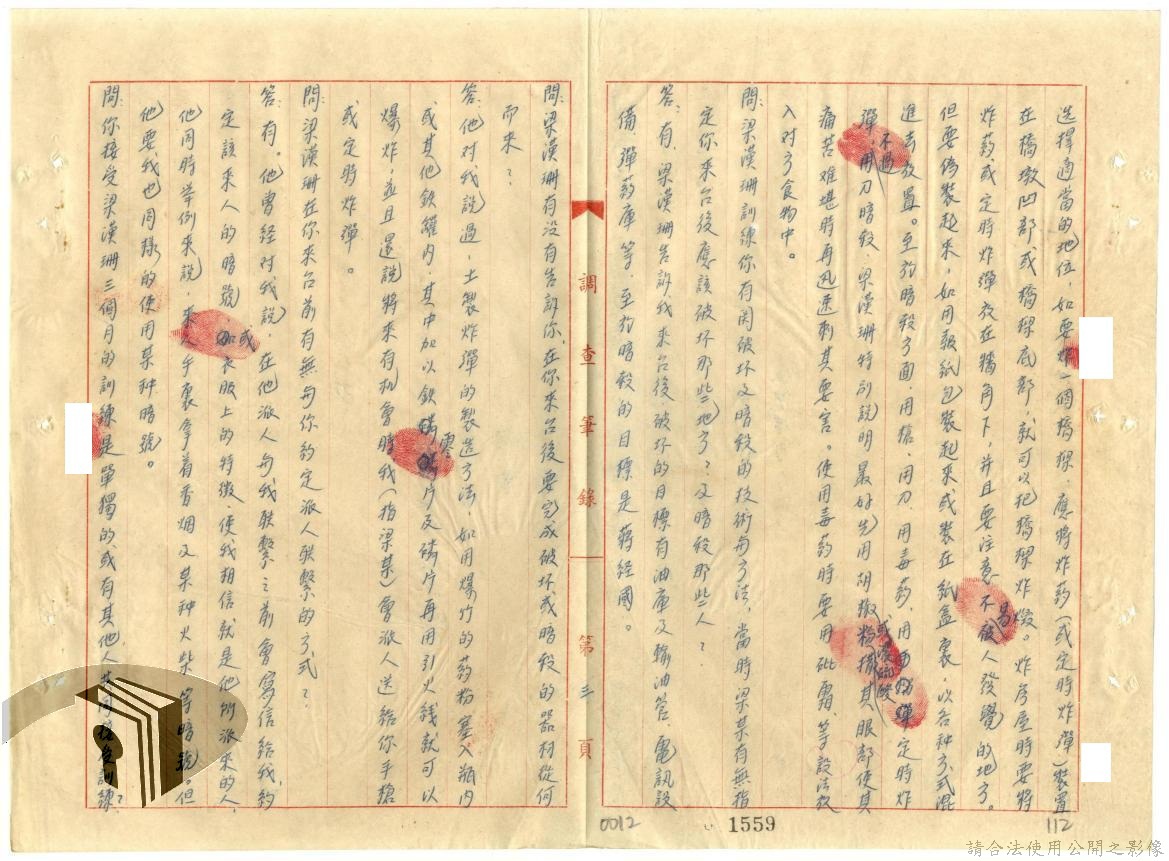 選擇適當的地位，如要炸一個橋樑，應將炸葯(或定時炸彈)裝置
在橋墩凹部或橋樑底部，就可以把橋樑炸燬。炸房屋時要將
炸葯或定時炸彈放在牆角下，并且要注意不易被人發覺的地方。
但要偽裝起來，如用報紙包裝起來或裝在紙盒裏，以各种方式混
進去放置。至於暗殺方面，用槍、用刀、用毒葯，用定時炸
彈，不過用刀暗殺，梁漢珊特別說明最好先用胡椒粉或濃硫酸撒其眼部使其
痛苦难堪時再迅速刺其要害。使用毒葯時要用砒霜，等設法放
入对方食物中。
問：梁漢珊訓練你有関破坏及暗殺的技術与方法，當時梁某有無指
定你來台後應該破坏那些地方？及暗殺那些人？
答：有，梁漢珊告訴我來台後破坏的目標有油庫及輸油管、電訊設
備、彈葯庫等，至於暗殺的目標是蔣経國。
調查筆錄
第三頁
問：梁漢珊有没有告訴你，在你來台後要完成破坏或暗殺的器材從何
而來？
答：他对我說過，土製炸彈的製造方法，如用爆竹的葯粉塞入瓶内
或其他鉄罐内，其中加以鉄磷零片及磷片再用引火綫就可以
爆炸，並且還說將來有机會時我(指梁某)會派人送給你手槍
或定時炸彈。
問：梁漢珊在你來台前有無与你約定派人联繫的方式？
答：有。他曾経对我說，在他派人与我联繫之前會寫信給我，約
定該來人的暗號或衣服上的特徵，使我相信就是他所派來的人，
他同時举例來說，來人手裏拿着香烟及某种火柴等暗號。但
他要我也同樣的使用某种暗號。
問：你接受梁漢珊三個月的訓練是單獨的或有其他人共同接受訓練？
0012
1559
112
請合法使用公開之影像